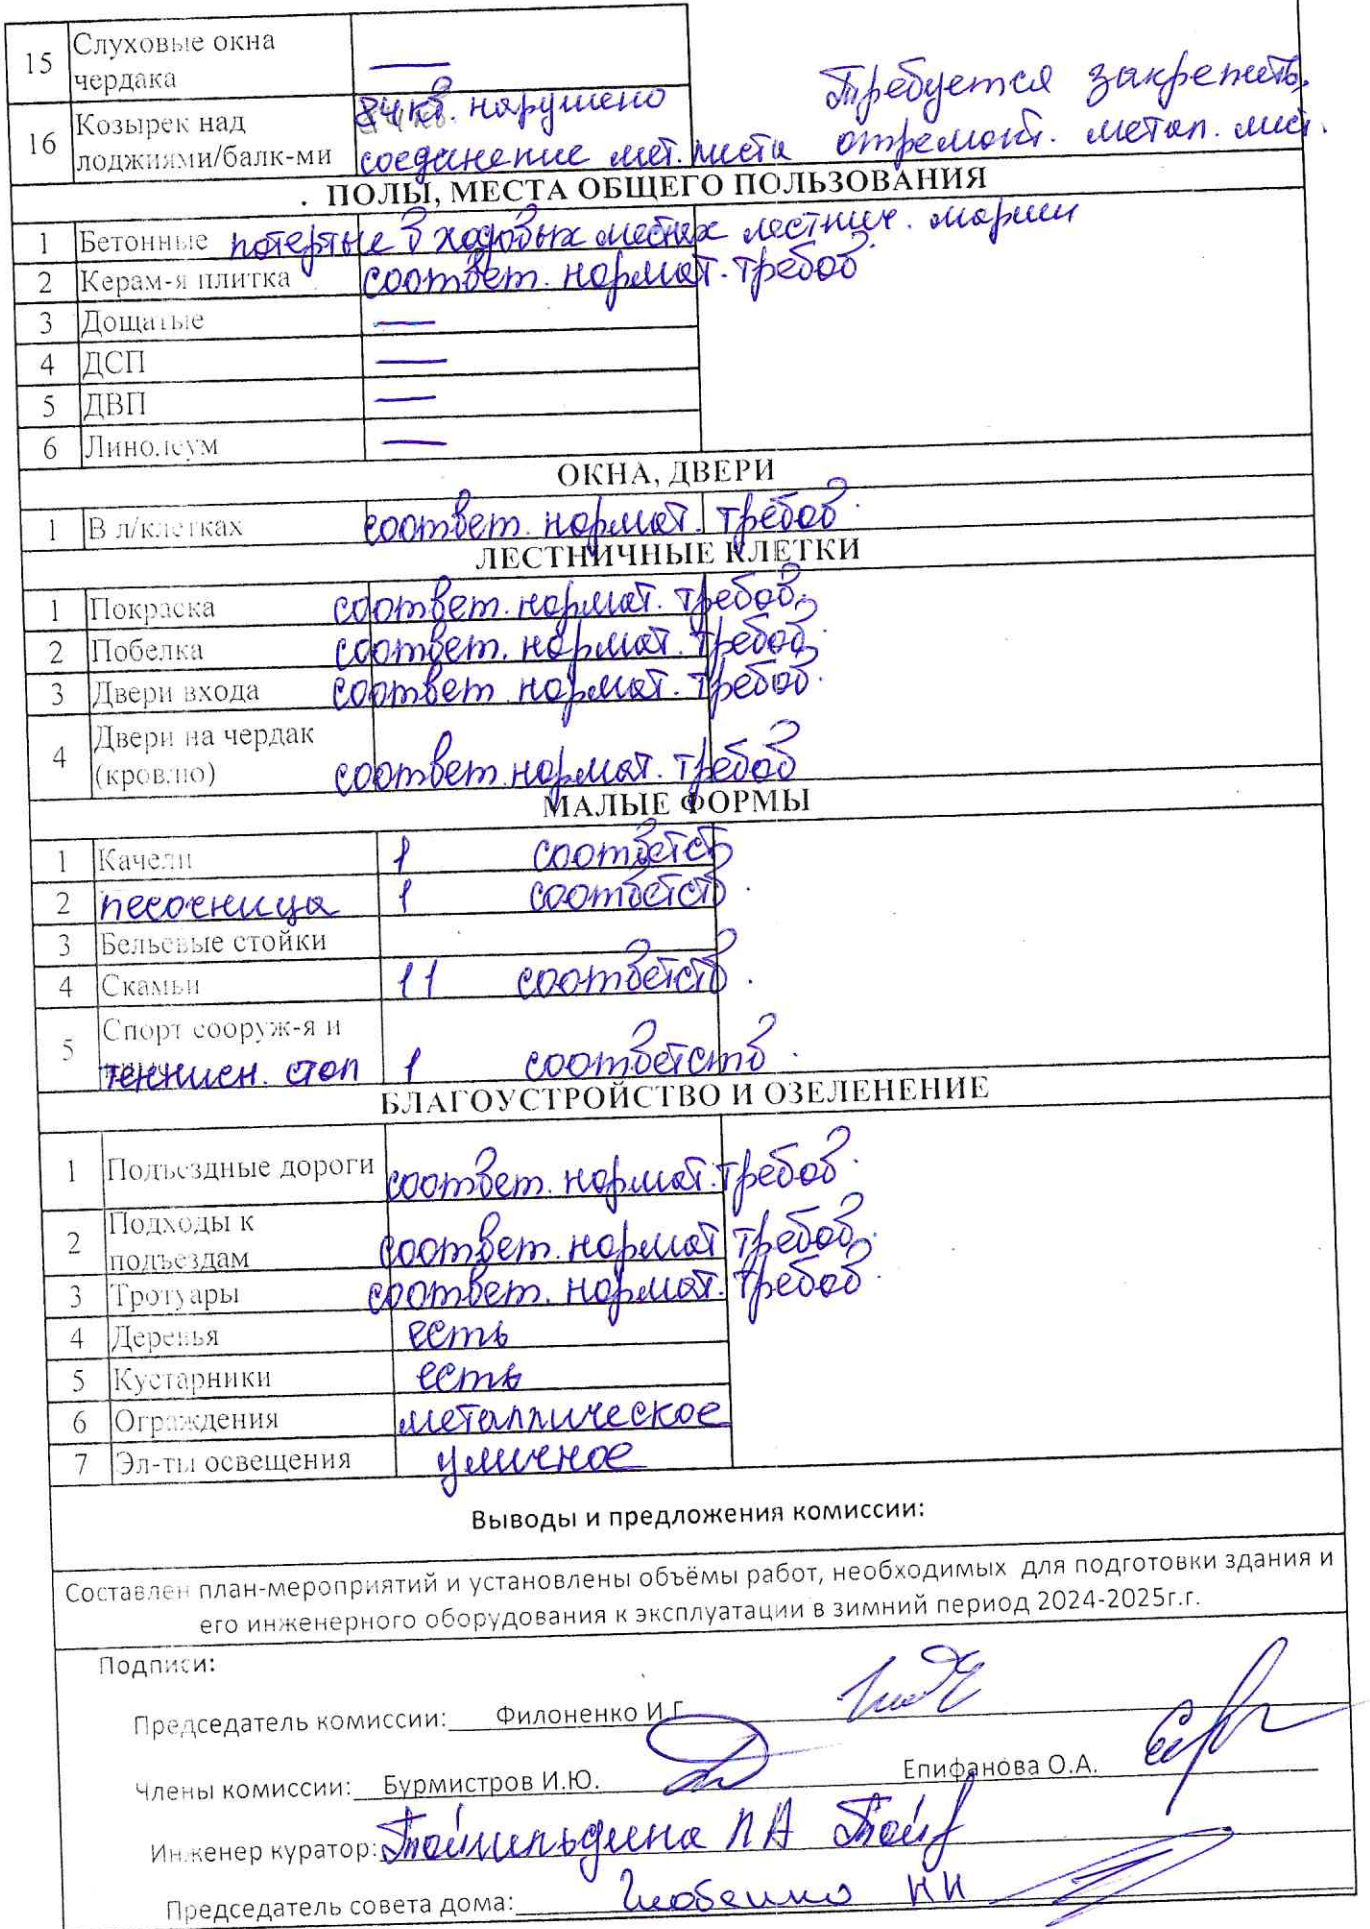 15 Слуховые окна
чердака —
Требуется закрепить,
16 Козырек над 84 кв. нарушено
лоджиями/балк-ми соединение мет. листа отремонт. метал. лист.
. ПОЛЫ, МЕСТА ОБЩЕГО ПОЛЬЗОВАНИЯ
1 Бетонные потертые в ходовых местах лестнич. марши
2 Керам-я плитка соответ. нормат. требов.
3 Дощатые —
4 ДСП —
5 ДВП —
6 Линолеум —
ОКНА, ДВЕРИ
1 В л/клетках соответ. нормат. требов.
ЛЕСТНИЧНЫЕ КЛЕТКИ
1 Покраска соответ. нормат. требов.
2 Побелка соответ. нормат. требов.
3 Двери входа соответ. нормат. требов.
4 Двери на чердак
(кровлю) соответ. нормат. требов
МАЛЫЕ ФОРМЫ
1 Качели 1 соответств
2 песочница 1 соответств.
3 Бельевые стойки
4 Скамьи 11 соответств.
5 Спорт сооруж-я и
теннисн. стол 1 соответств.
БЛАГОУСТРОЙСТВО И ОЗЕЛЕНЕНИЕ
1 Подъездные дороги соответ. нормат. требов.
2 Подходы к
подъездам соответ. нормат требов.
3 Тротуары соответ. нормат. требов.
4 Деревья есть
5 Кустарники есть
6 Ограждения металлическое
7 Эл-ты освещения уличное
Выводы и предложения комиссии:
Составлен план-мероприятий и установлены объёмы работ, необходимых для подготовки здания и
его инженерного оборудования к эксплуатации в зимний период 2024-2025г.г.
Подписи:
Председатель комиссии: Филоненко И.Г.
Члены комиссии: Бурмистров И.Ю. Епифанова О.А.
Инженер куратор:
Председатель совета дома: